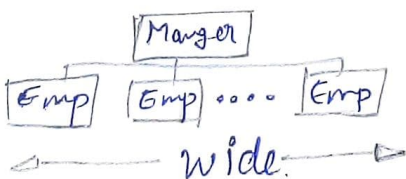 Manger
Emp Emp .... Emp
wide.